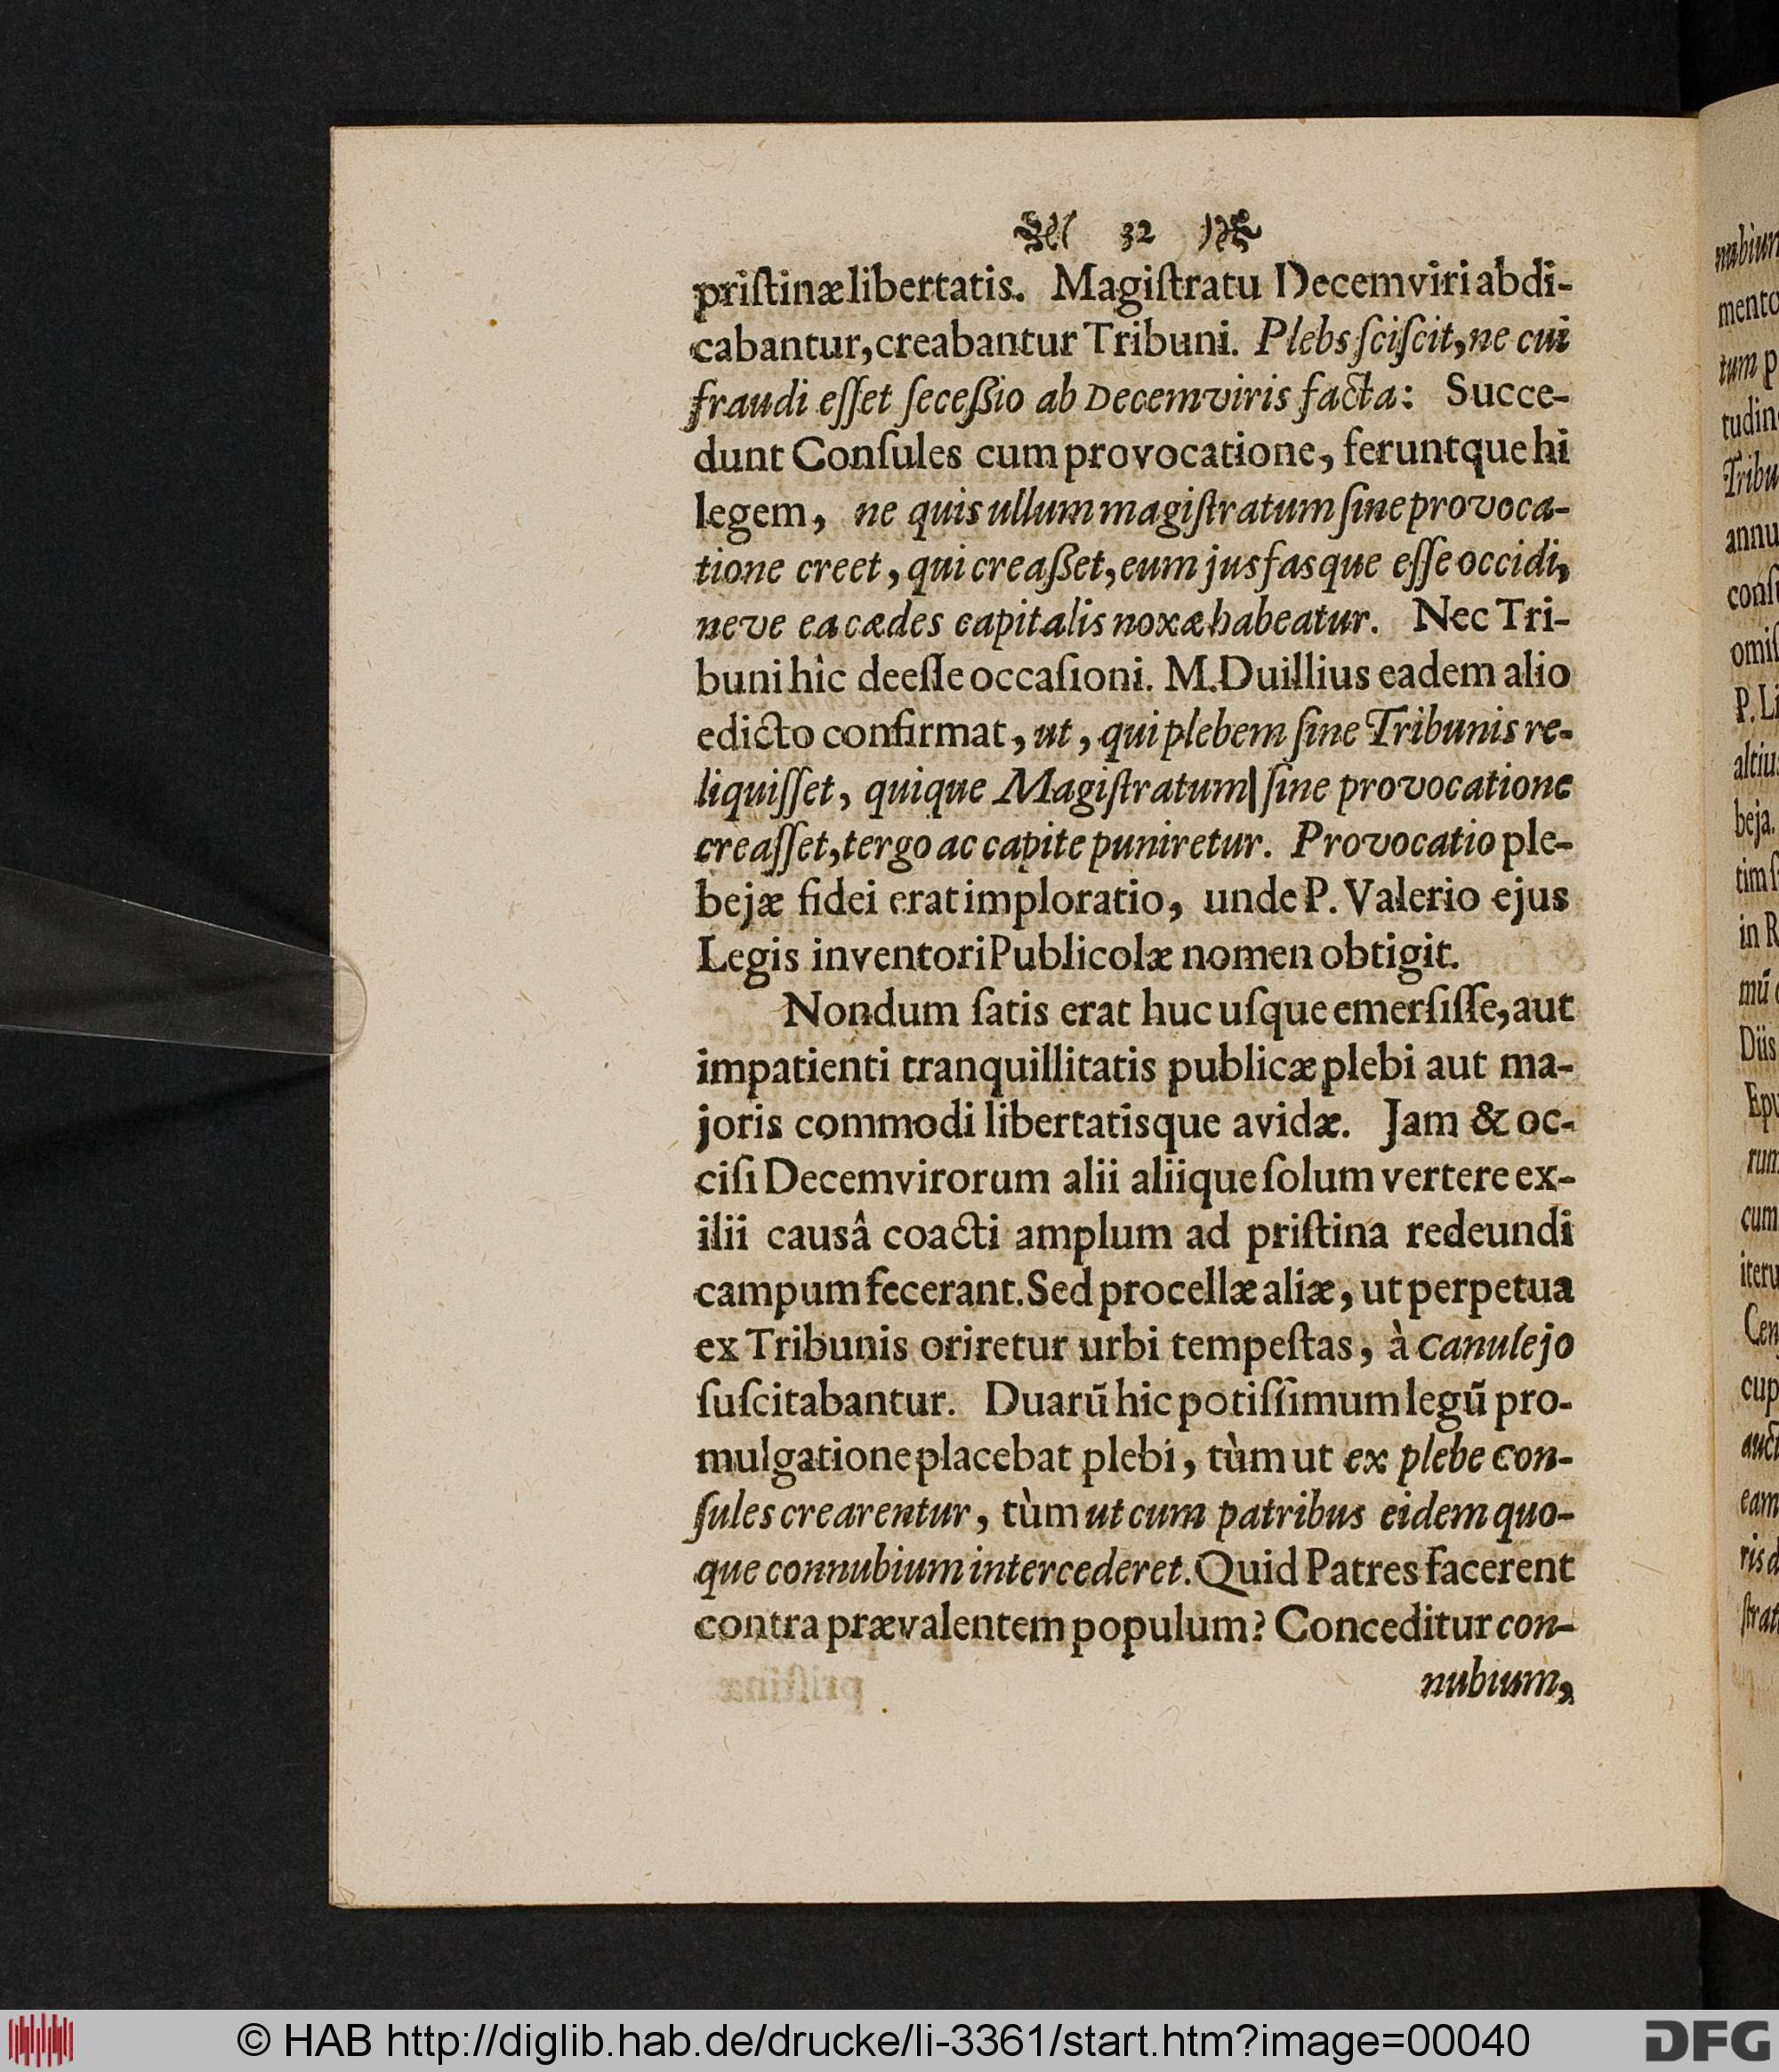 32
priſtinæ libertatis. Magiſtratu Decemviri abdi-
cabantur, creabantur Tribuni. Plebs ſciſcit, ne cui
fraudi eſſet ſeceßio ab Decemviris facta: Succe-
dunt Conſules cum provocatione, feruntque hi
legem, ne quis ullum magiſtratum ſine provoca-
tione creet, qui creaßet, eum jus fasque eſſe occidi,
neve ea cædes capitalis noxæ habeatur. Nec Tri-
buni hîc deeſſe occaſioni. M. Duillius eadem alio
edicto confirmat, ut, qui plebem ſine Tribunis re-
liquiſſet, quique Magiſtratum| ſine provocatione
creaſſet, tergo ac capite puniretur. Provocatio ple-
bejæ fidei erat imploratio, unde P. Valerio ejus
Legis inventori Publicolæ nomen obtigit.
Nondum ſatis erat huc uſque emerſiſſe, aut
impatienti tranquillitatis publicæ plebi aut ma-
joris commodi libertatisque avidæ. Jam & oc-
ciſi Decemvirorum alii aliique ſolum vertere ex-
ilii causâ coacti amplum ad priſtina redeundi
campum fecerant. Sed procellæ aliæ, ut perpetua
ex Tribunis oriretur urbi tempeſtas, à Canulejo
ſuſcitabantur. Duarū hic potiſſimum legū pro-
mulgatione placebat plebi, tùm ut ex plebe Con-
ſules crearentur, tùm ut cum patribus eidem quo-
que connubium intercederet. Quid Patres facerent
contra prævalentem populum? Conceditur con-
nubium,
mento
tum p
Tribu
annu
P. Li
beja.
in R
Diis
rum
cum
eam
© HAB http://diglib.hab.de/drucke/li-3361/start.htm?image=00040
DFG